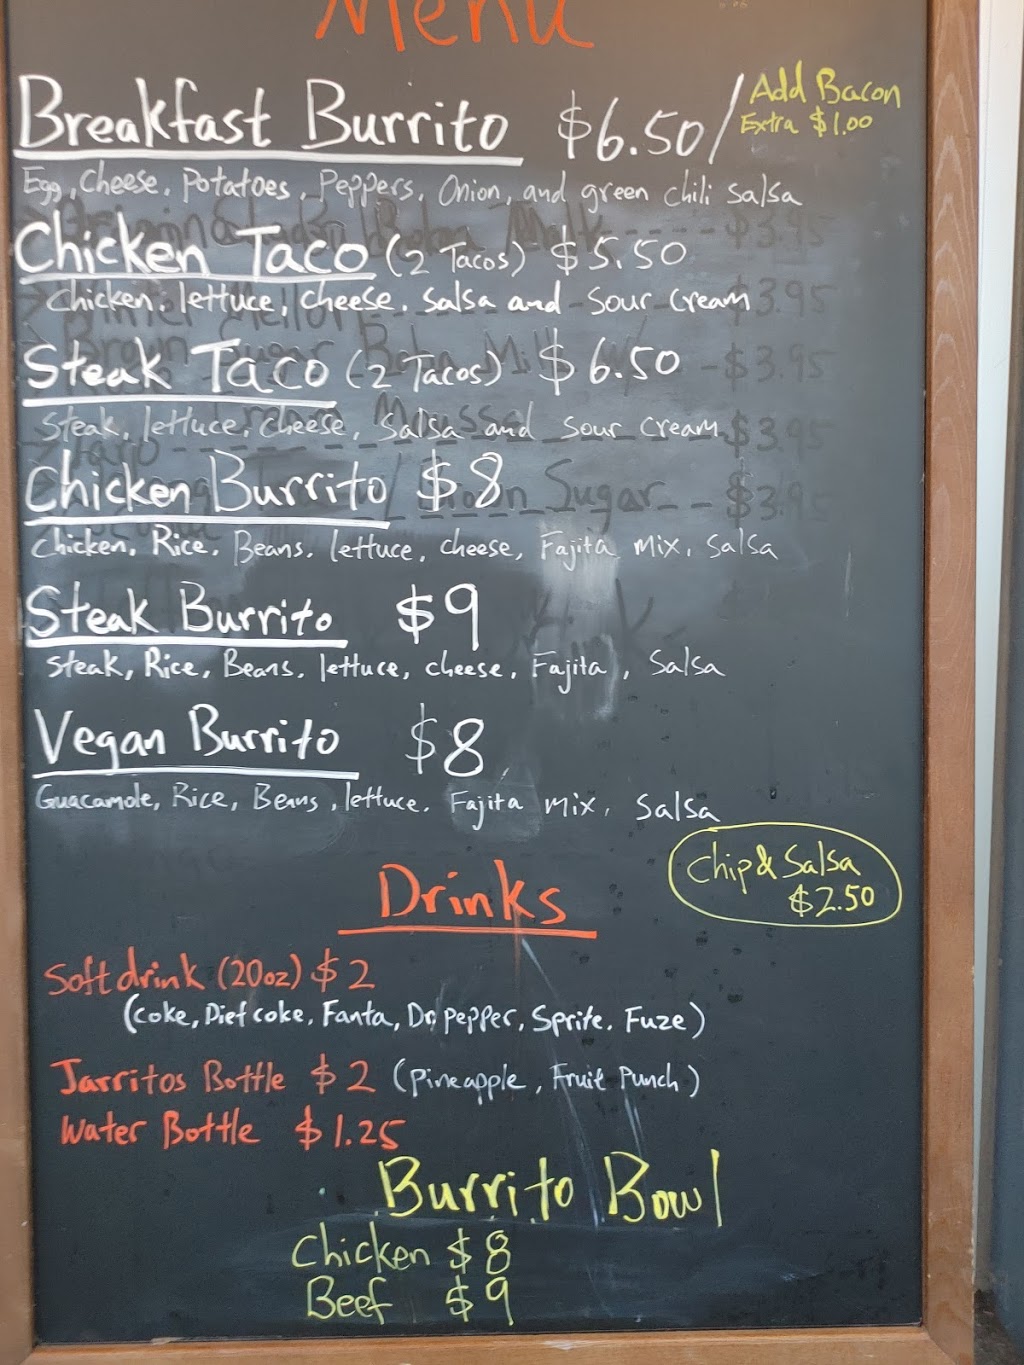 Menu
Breakfast Burrito $6.50/ Add Bacon
Extra $1.00
Egg, Cheese, Potatoes, Peppers, Onion, and green chili salsa
Chicken Taco (2 Tacos) $5.50
Chicken, lettuce, cheese, salsa and sour cream
Steak Taco (2 Tacos) $6.50
Steak, lettuce, cheese, salsa and sour cream
Chicken Burrito $8
Chicken, Rice, Beans, lettuce, cheese, Fajita mix, salsa
Steak Burrito $9
Steak, Rice, Beans, lettuce, cheese, Fajita, Salsa
Vegan Burrito $8
Guacamole, Rice, Beans, lettuce, Fajita mix, Salsa
Chip & Salsa
$2.50
Drinks
Soft drink (20oz) $2
(Coke, Diet coke, Fanta, Dr. Pepper, Sprite, Fuze)
Jarritos Bottle $2 (Pineapple, Fruit Punch)
Water Bottle $1.25
Burrito Bowl
Chicken $8
Beef $9